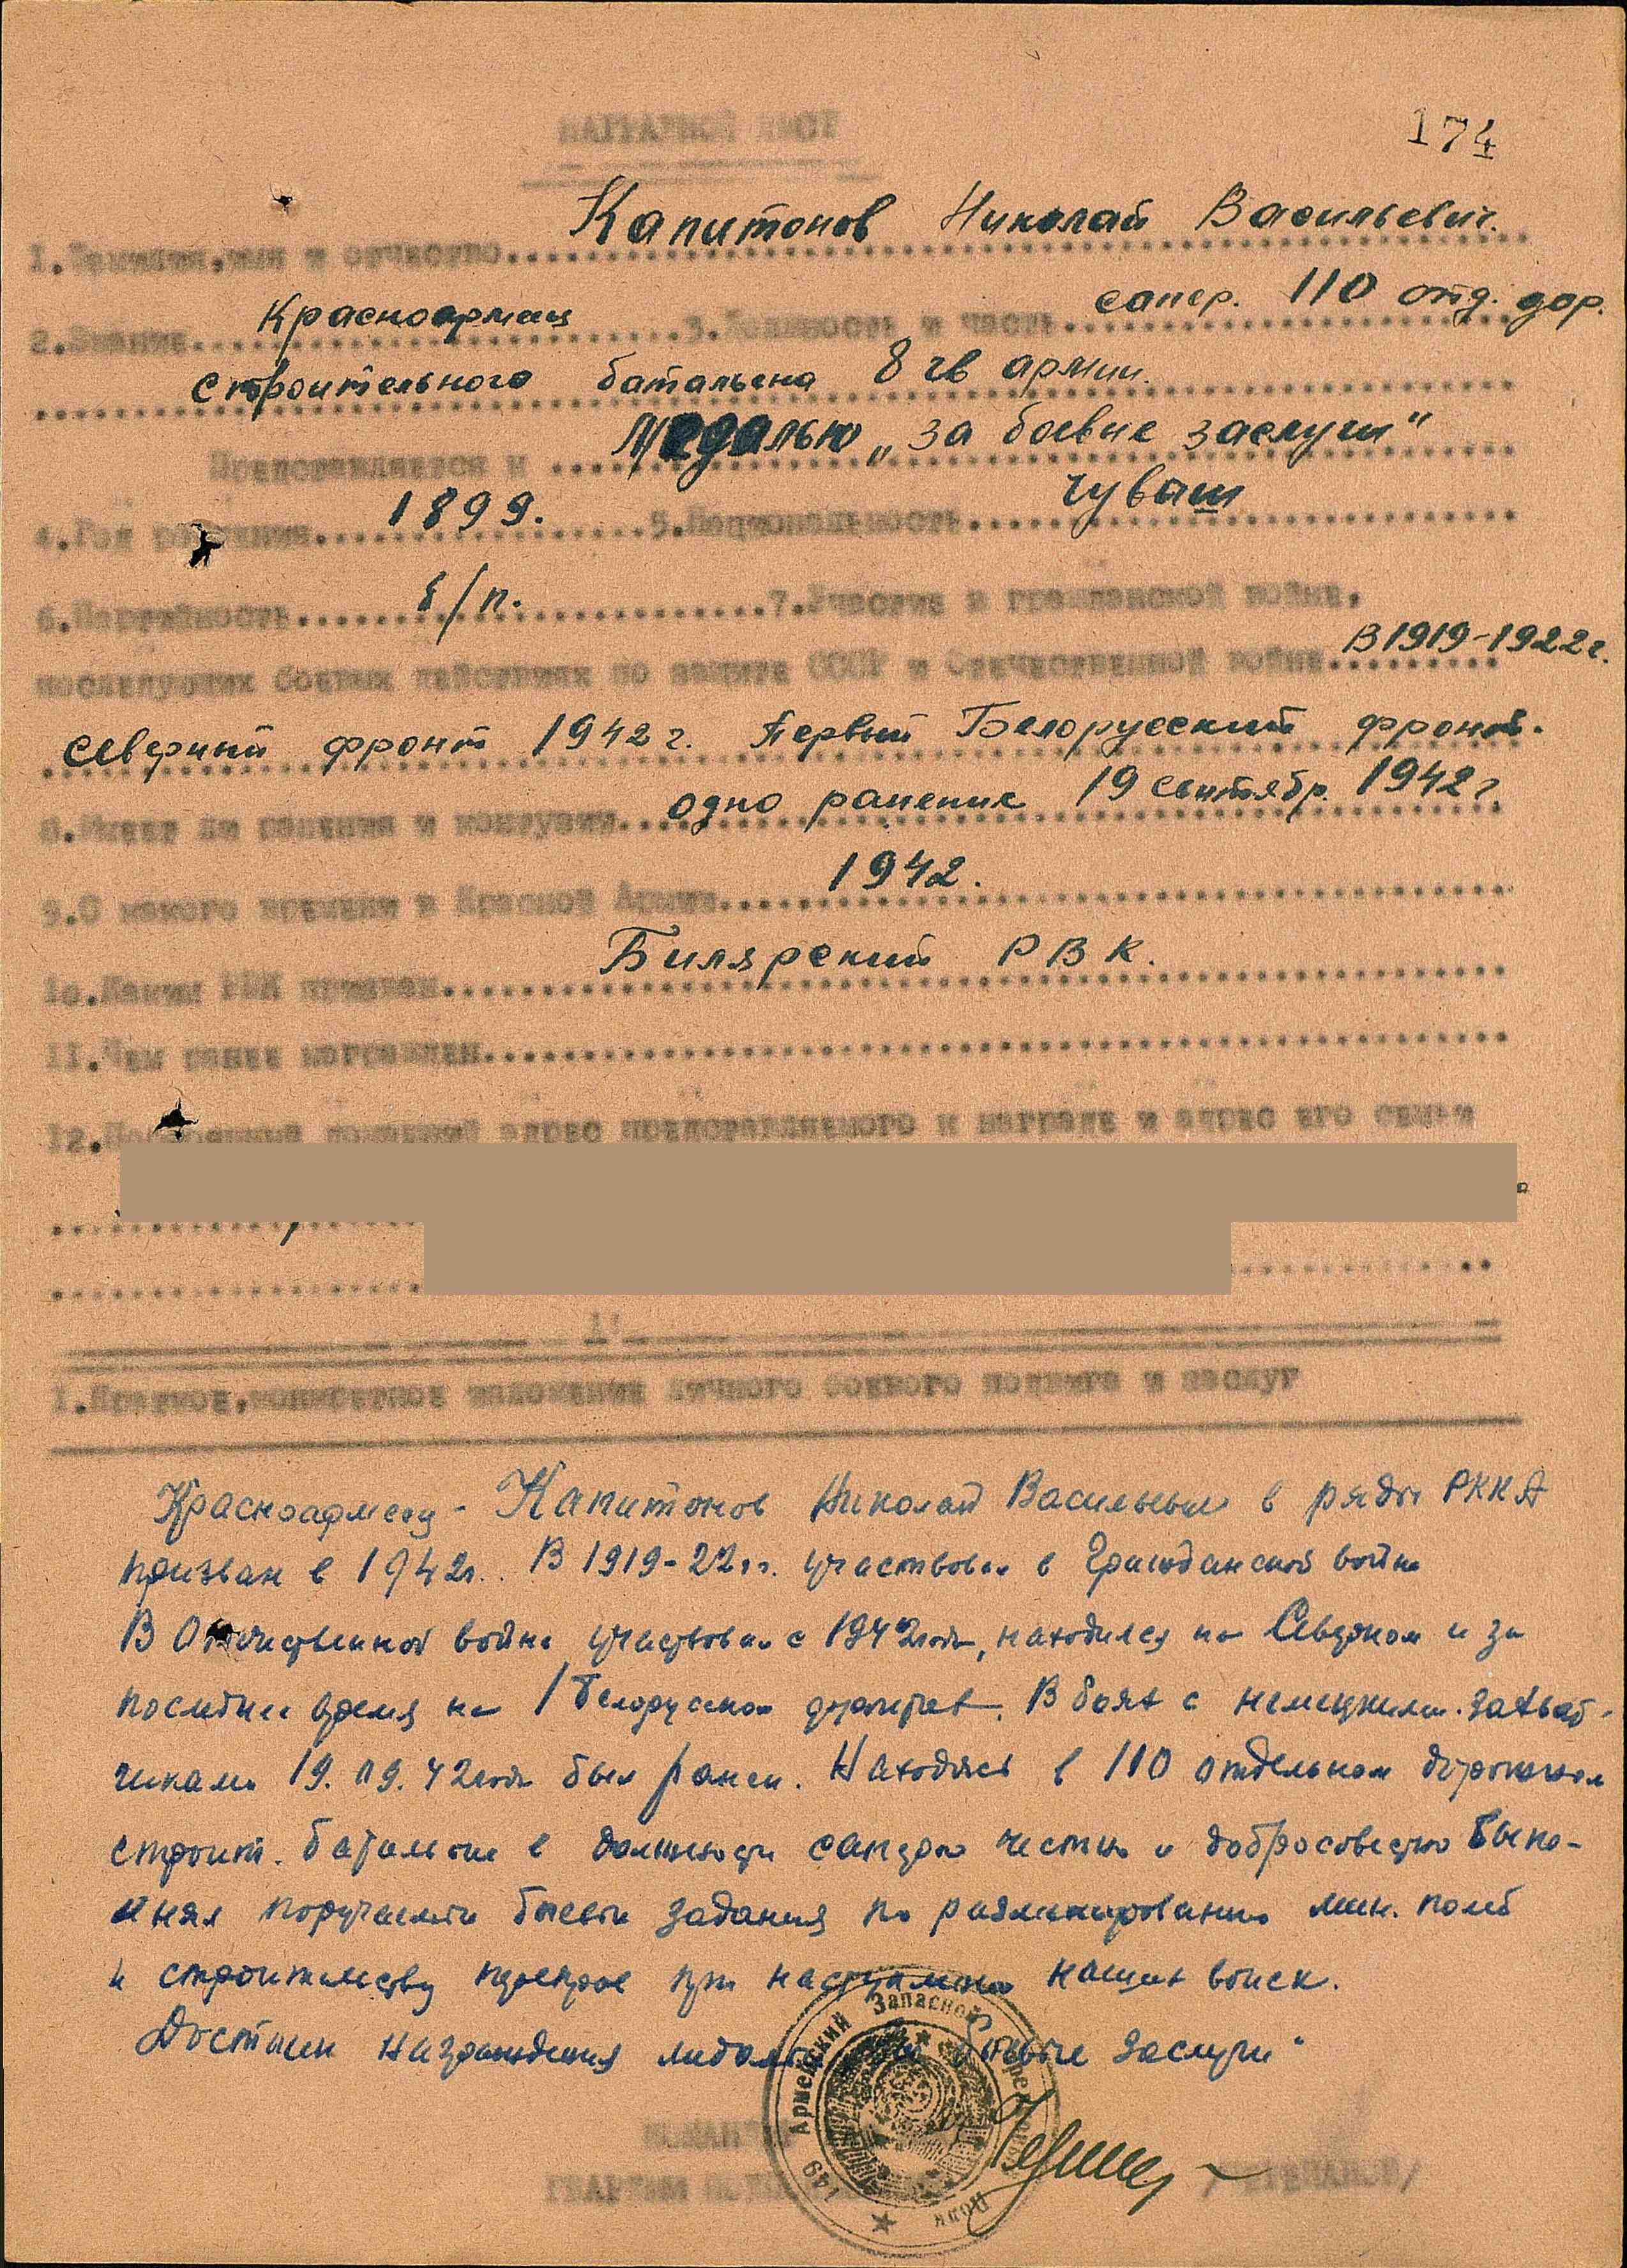 НАГРАДНОЙ ЛИСТ
174
Капитонов Николай Васильевич.
1.Фамилия,имя и отчество
Красноармеец сапер. 110 отд. дор.
2.Звание 3.Должность и часть
строительного батальена 8 гв армии.
Представляется к Медалью „за боевые заслуги“
4.Год рождения 1899. 5.Национальность чуваш
6.Партийность б/п. 7.Участие в гражданской войне,
последующих боевых действиях по защите СССР и Отечественной войне В 1919-1922г.
северный фронт 1942 г. Первый Белорусский фронт.
8.Имеет ли ранения и контузии одно ранение 19 сентябр. 1942 г.
9.С какого времени в Красной Армии 1942.
10.Каким РВК призван Билярский РВК.
11.Чем ранее награжден
12.Постоянный домашний адрес представляемого к награде и адрес его семьи
1.Краткое,конкретное изложение личного боевого подвига и заслуг
Красноармеец - Капитонов Николай Васильевич в ряды РККА
призван в 1942г. В 1919-22гг. участвовал в Гражданской войне
В Отечественной войне участвовал с 1942 года, находился на Северном и за
последнее время на 1 Белорусском фронтах. В боях с немецкими захват-
чиками 19.09.42 года был ранен. Находясь в 110 отдельном дорожном
строит. батальоне в должности сапера честно и добросовестно выпо-
лнял поручаемые боевые задания по разминированию мин. полей
и строительству переправ при наступлении наших войск.
Достоин награждения медалью „За боевые заслуги“
КОМАНДИР
ГВАРДИИ
149 Армейский Запасной Стрелковый Полк